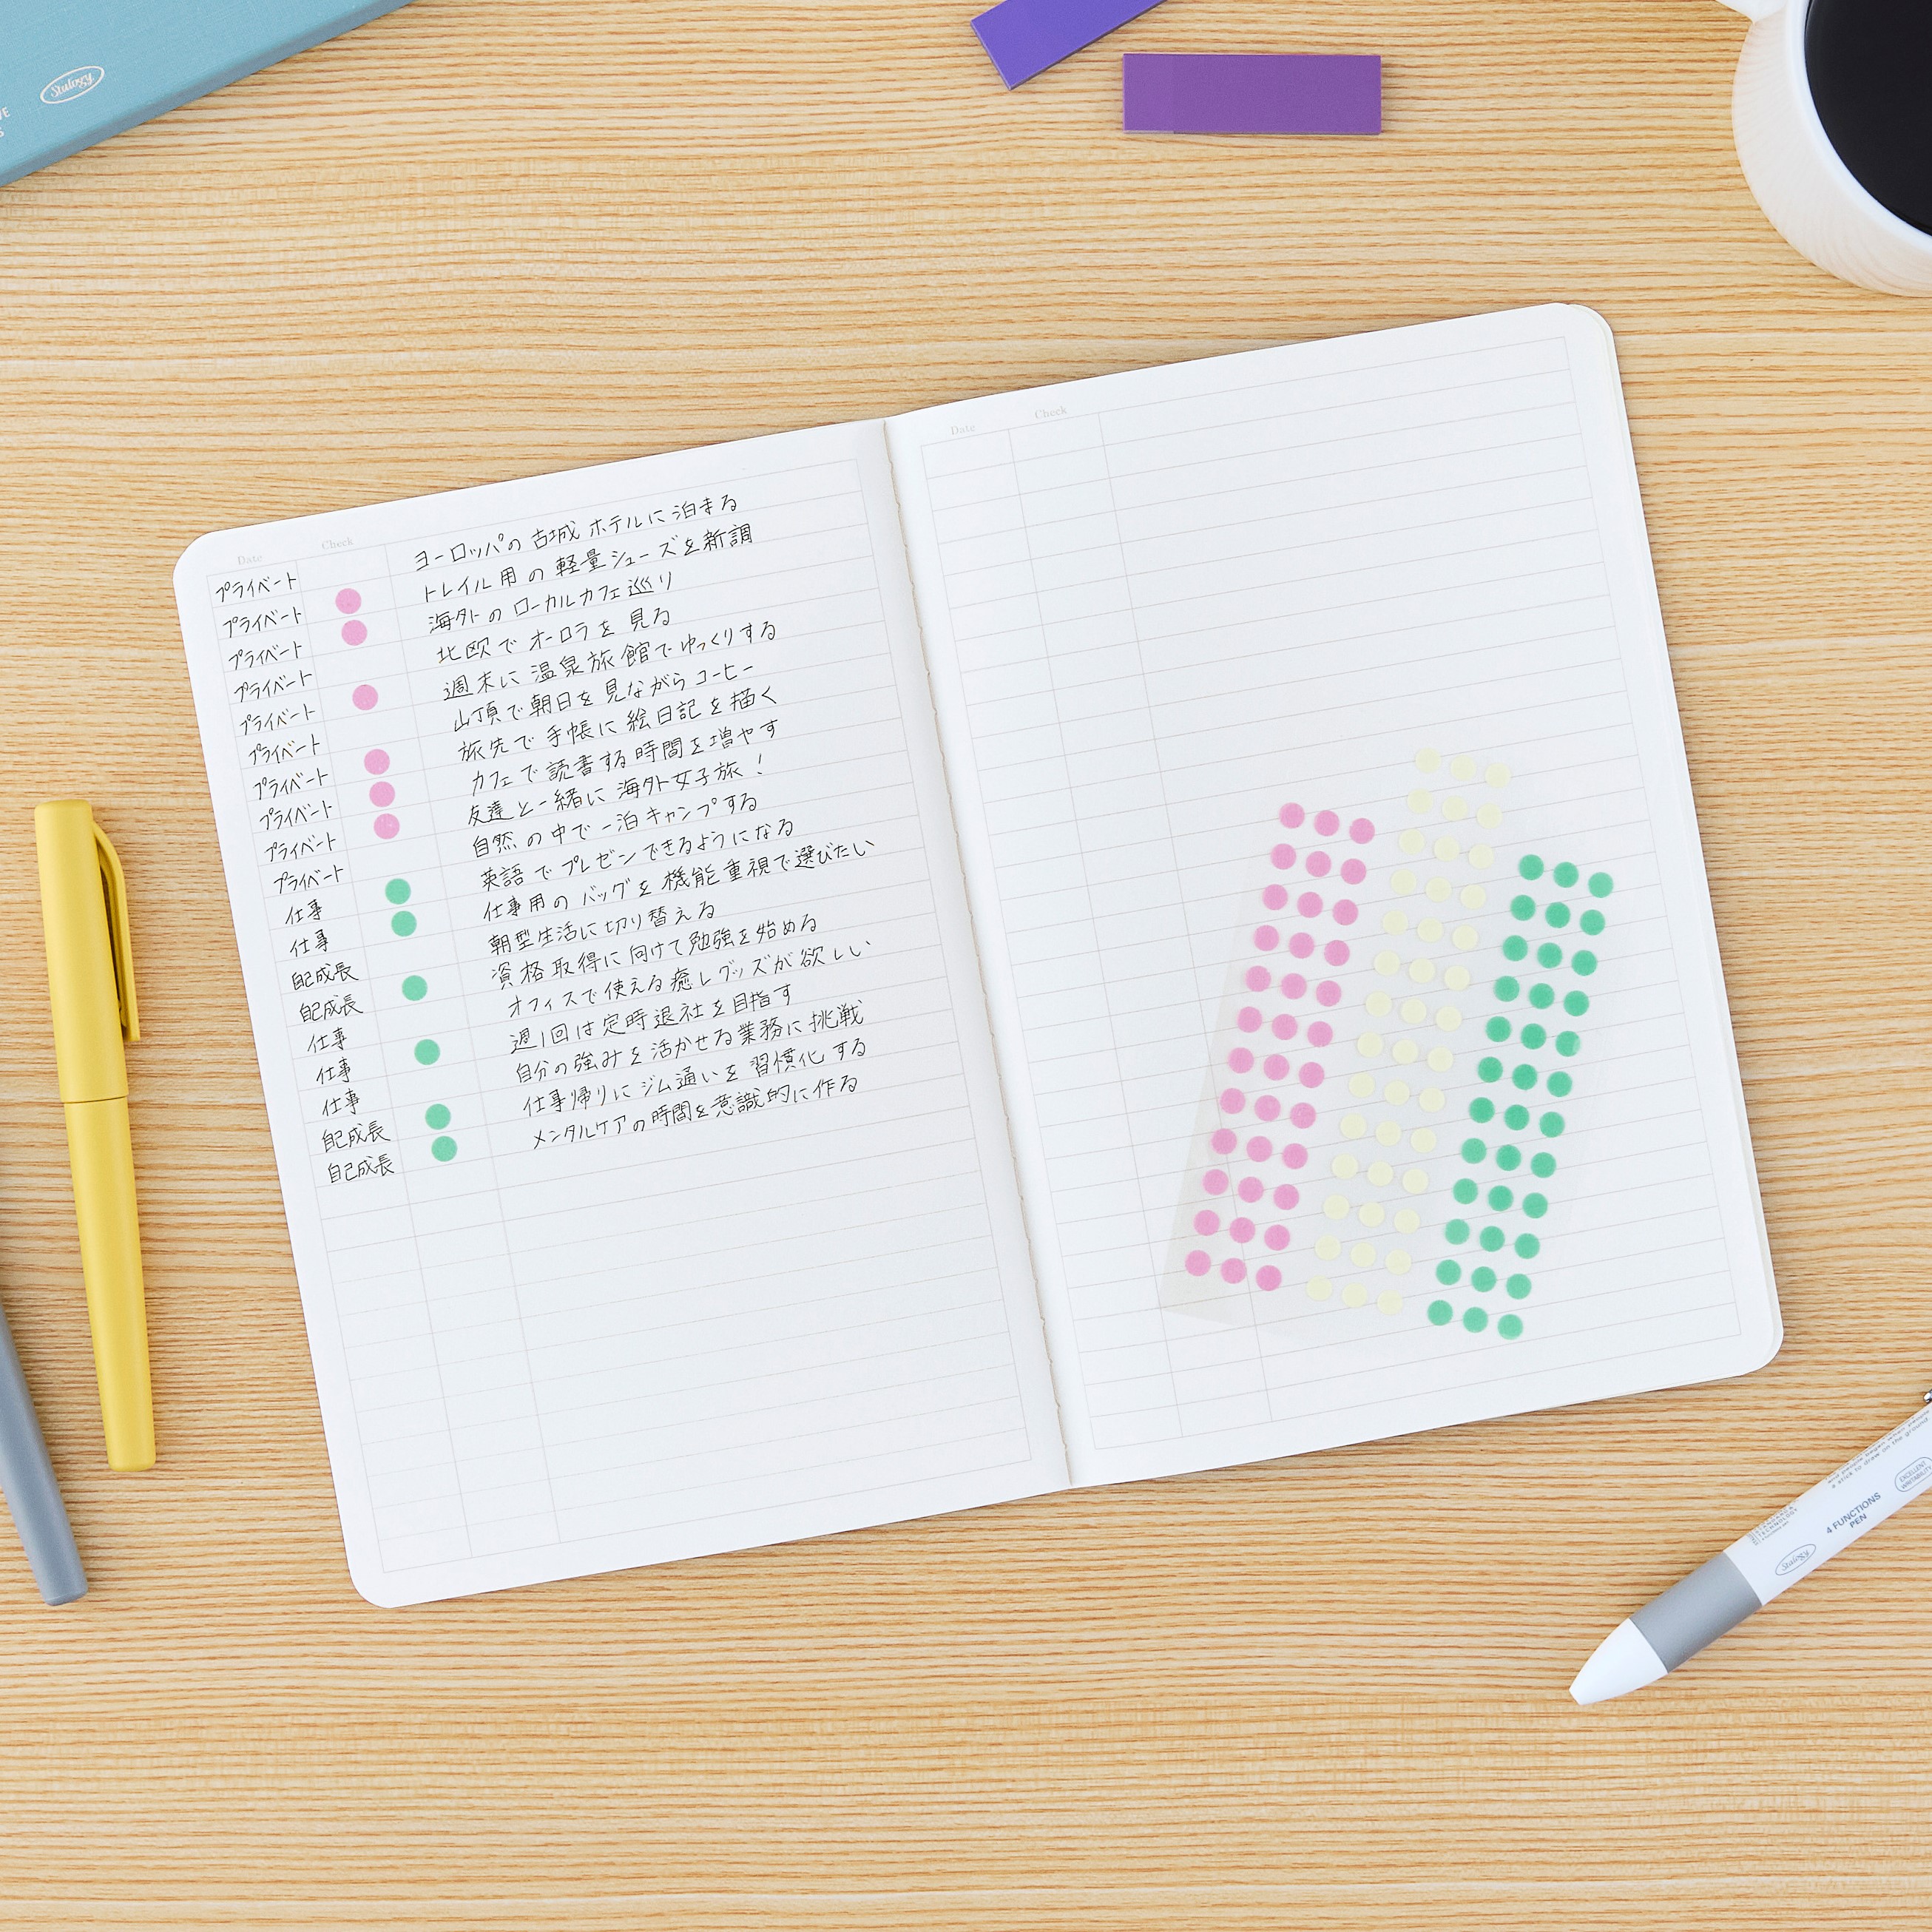 Stalogy
Date Check
プライベート ヨーロッパの古城ホテルに泊まる
プライベート トレイル用の軽量シューズを新調
プライベート 海外のローカルカフェ巡り
プライベート 北欧でオーロラを見る
プライベート 週末に温泉旅館でゆっくりする
プライベート 山頂で朝日を見ながらコーヒー
プライベート 旅先で手帳に絵日記を描く
プライベート カフェで読書する時間を増やす
プライベート 友達と一緒に海外女子旅!
プライベート 自然の中で一泊キャンプする
仕事 英語でプレゼンできるようになる
仕事 仕事用のバッグを機能重視で選びたい
自己成長 朝型生活に切り替える
自己成長 資格取得に向けて勉強を始める
仕事 オフィスで使える癒しグッズが欲しい
仕事 週1回は定時退社を目指す
仕事 自分の強みを活かせる業務に挑戦
自己成長 仕事帰りにジム通いを習慣化する
自己成長 メンタルケアの時間を意識的に作る
Date Check
a stick to draw on the ground
4 FUNCTIONS
PEN
Stalogy